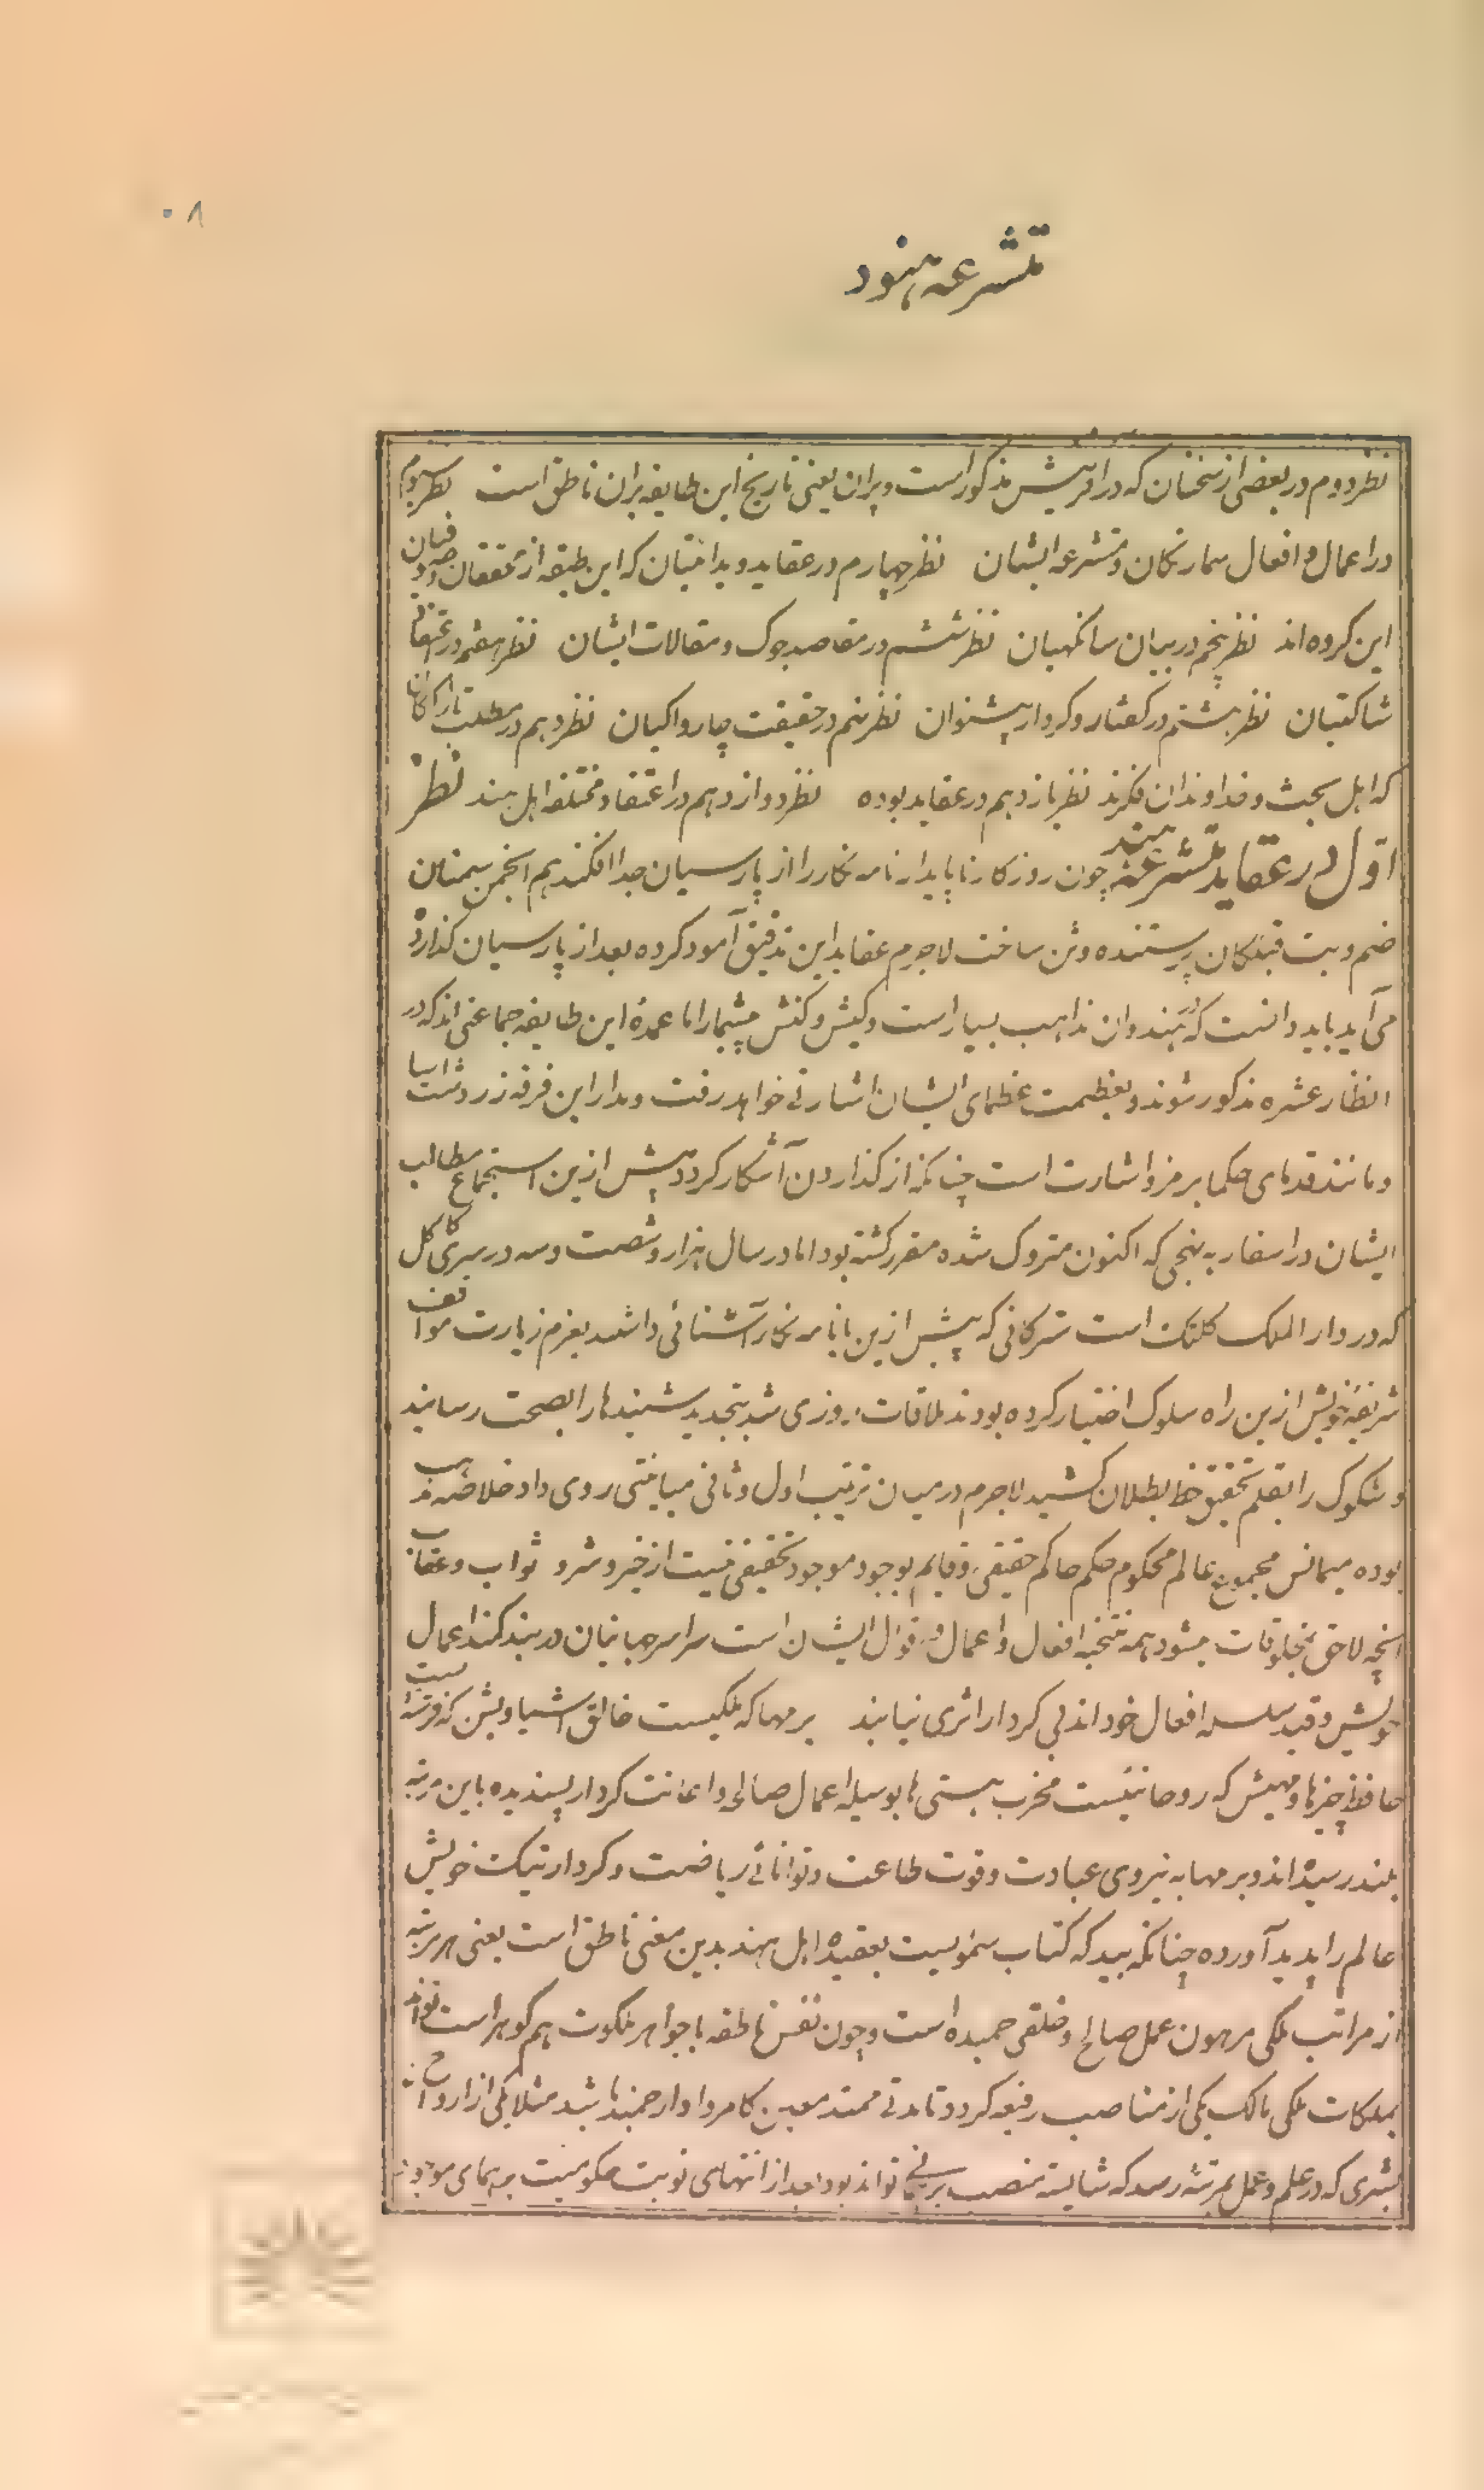 ۸۰
متشرعه هنود
نظر دوم در بعضی از سخنان که در افرینش مذکور است و پران یعنی تاریخ این طایفه بران ناطق است نظر سوم
در اعمال و افعال سمارتکان و متشرعه ایشان نظر چهارم در عقاید ویدانتیان که این طبقه از محققان و صوفیان
این کروه اند نظر پنجم در بیان سانکهیان نظر ششم در مقاصد جوک و مقالات ایشان نظر هفتم در عقاید
شاکتیان نظر هشتم در کفتار و کردار بیشنوان نظر نهم در حقیقت چارواکیان نظر دهم در مطلب تارکانان
که اهل بحث و خداوندان فکرند نظر یازدهم در عقاید بوده نظر دوازدهم در اعتقاد مختلفه اهل هند نظر
اول در عقاید متشرعه هند چون روزکار ناپایدار نامه نکار را از پارسیان جدا افکند هم انجمن سمنان
صنم و بت قبلکان پرستنده وثن ساخت لاجرم عقاید این تدقیق آمود کرده بعد از پارسیان کذارده
می آید باید دانست که در هندوان مذاهب بسیار است و کیش و کنش بیشمار اما عمدهٔ این طایفه جماعتی اند که در
انظار عشره مذکور شوند و بعظمت عظمای ایشان اشارتی خواهد رفت و مدار این فرقه زردشت اسا
و مانند قدمای حکما بر رمز و اشارت است چنانکه از کذاردن آشکار کردد پیش ازین استجماع مطالب
ایشان در اسفار به نهجی که اکنون متروک شده مقرر کشته بود اما در سال هزار و شصت و سه در سری کاکل
که در دار الملک کلنک است شرکائی که پیش ازین با نامه نکار آشنائی داشتند بعزم زیارت مواقف
شریفهٔ خویش ازین راه سلوک اختیار کرده بودند ملاقات روزی شد بتجدید شنیدها را بصحت رسانید
و شکوک را بقلم تحقیق خط بطلان کشید لاجرم در میان ترتیب اول و ثانی مباینتی روی داد خلاصه مذهب
بوده میمانس مجموع عالم محکوم حکم حاکم حقیقی و قایم بوجود موجود تحقیقی نیست از خیر و شر و ثواب و عقاب
انچه لاحق مخلوقات میشود همه نتیجه افعال و اعمال و اقوال ایشان است سراسر جهانیان در بند کمند اعمال
خویش و قید سلسله افعال خود اند بی کردار اثری نیابند برمها که ملکیست خالق اشیا و بشن که فرشته است
حافظ چیزها و مهیش که روحانیست مخرب هستی ها بوسیله اعمال صالحه و اعانت کردار پسندیده باین مرتبه
بلند رسیده اند و برمها به نیروی عبادت و قوت طاعت و توانائی ریاضت و کردار نیک خویش
عالم را پدید آورده چنانکه بید که کتاب سماویست بعقیدهٔ اهل هند بدین معنی ناطق است یعنی هر مرتبه
از مراتب ملکی مرهون عمل صالح و خلقی حمیده است و چون نفس ناطقه با جواهر ملکوت هم کوهر است تواند
بملکات ملکی مالک یکی از مناصب رفیعه کردد تا مدتی ممتد معین کامروا و ارجمند باشد مثلا یکی از ارواح
بشری که در علم و عمل بمرتبهٔ رسد که شایسته منصب برمهی تواند بود بعد از انتهای نوبت حکومیت برمهای موجود